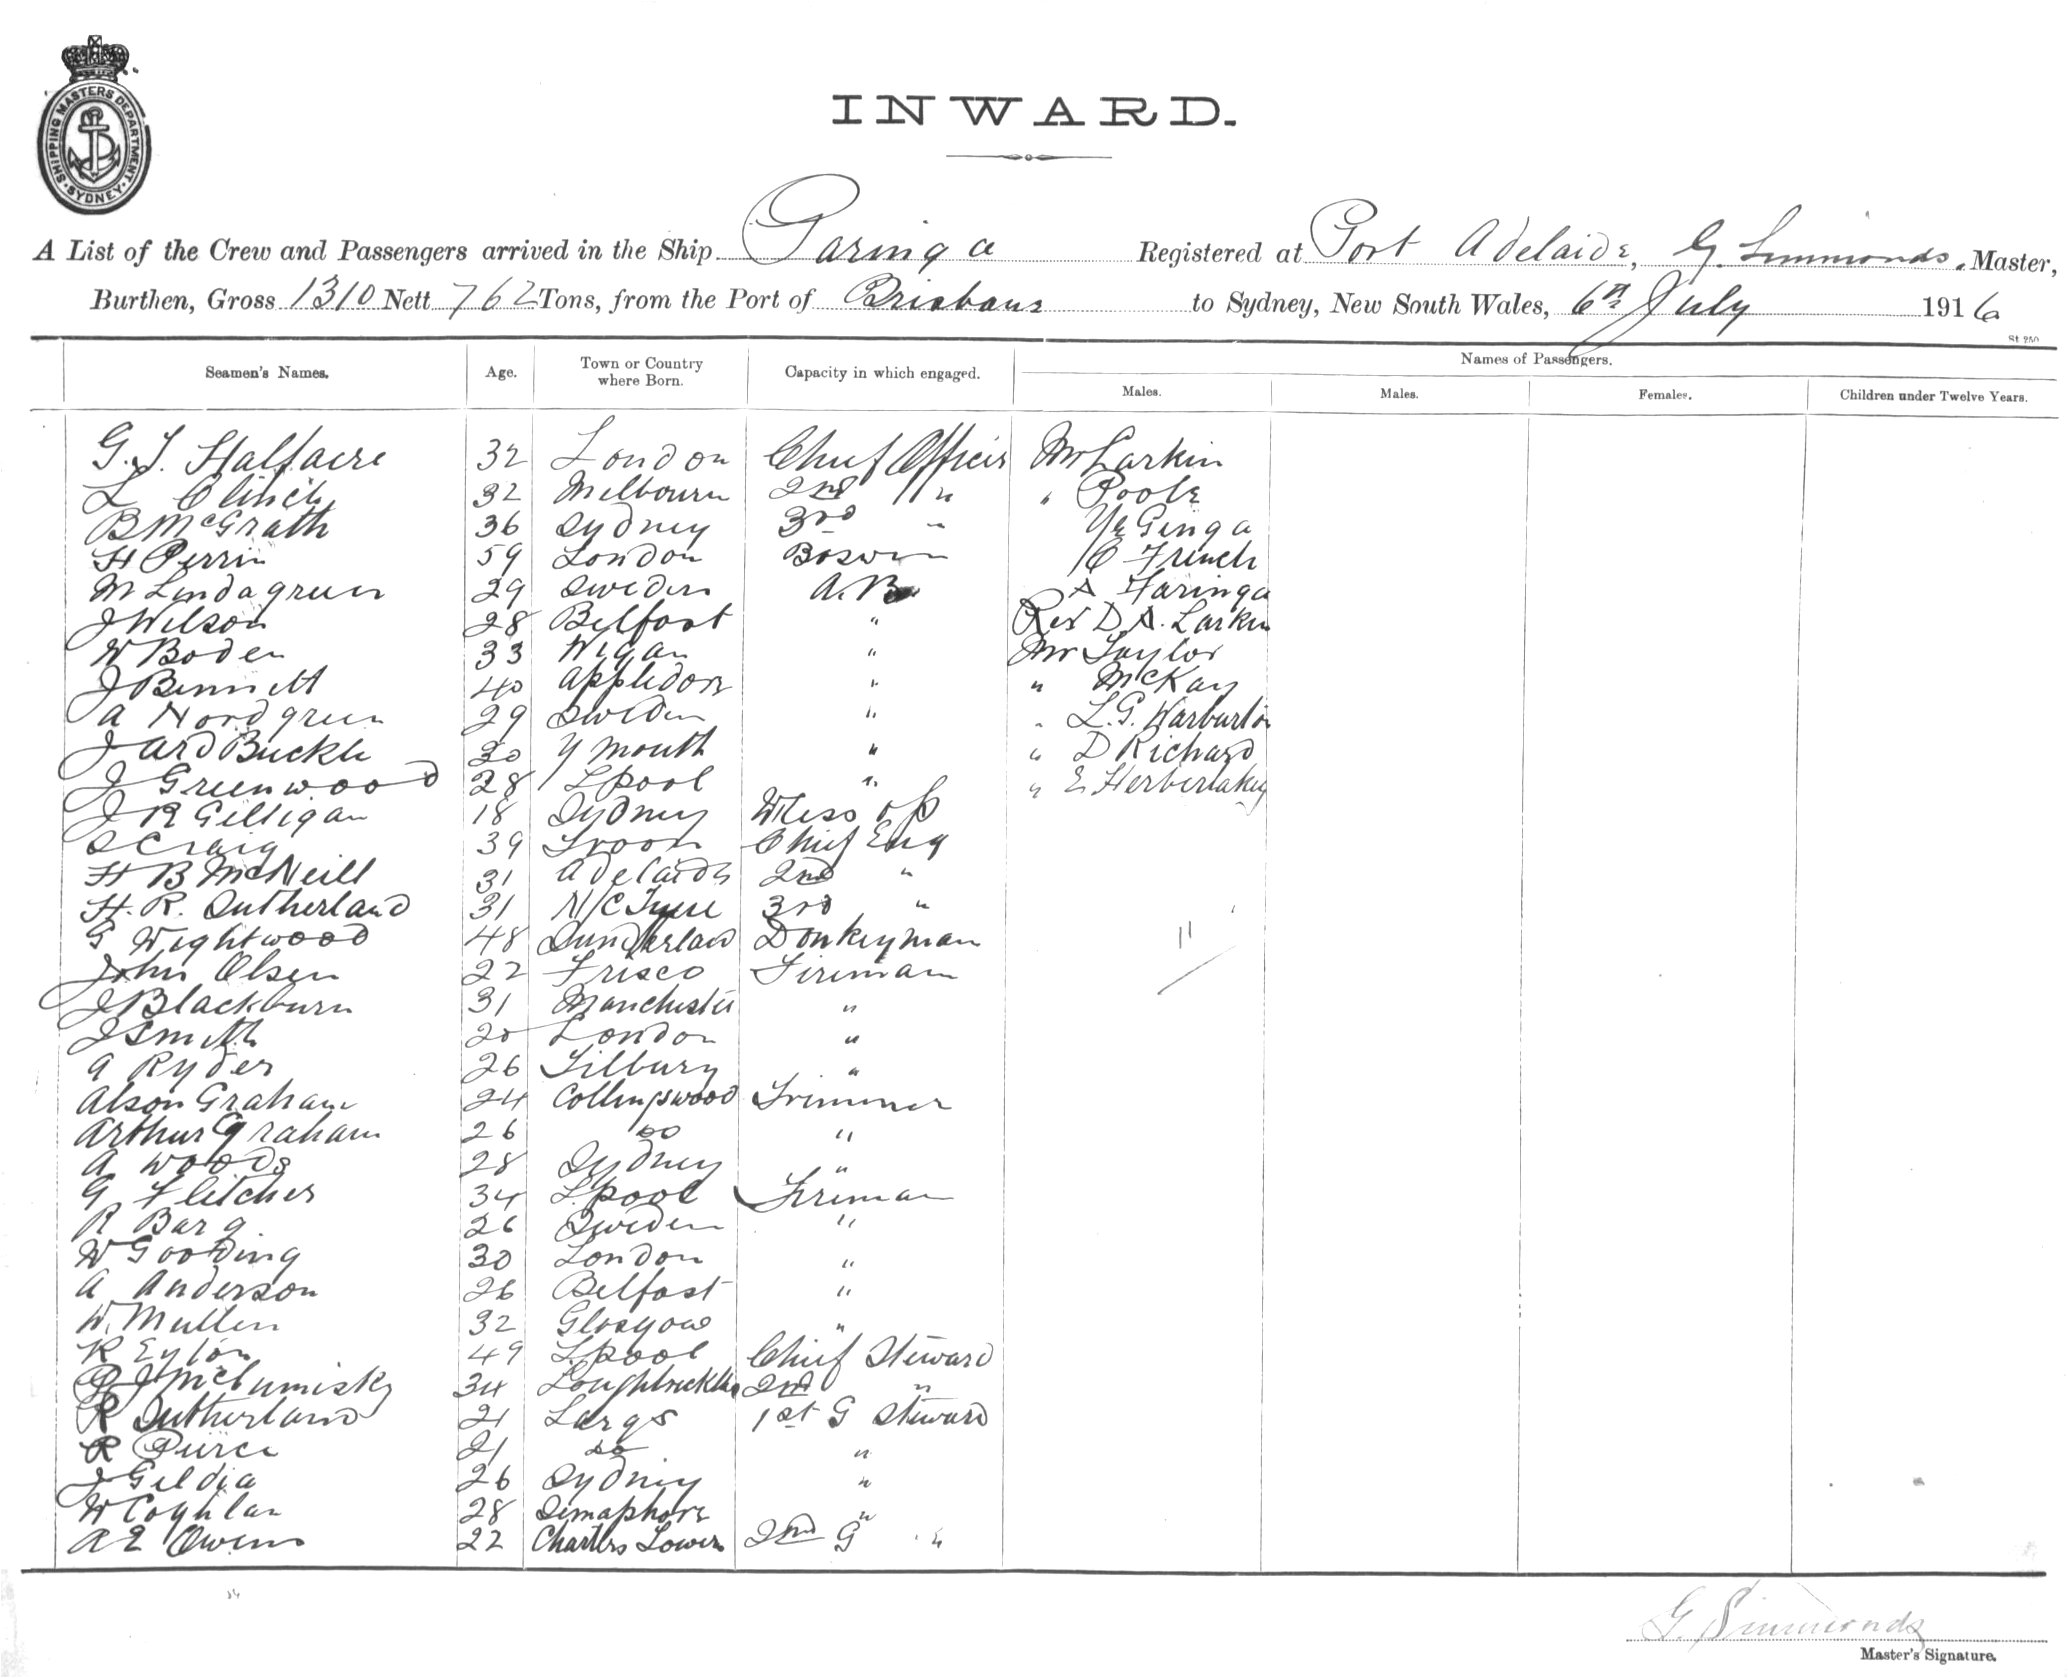 SHIPPING MASTERS DEPARTMENT · SYDNEY ·
INWARD.
A List of the Crew and Passengers arrived in the Ship Paringa Registered at Port Adelaide, G. Simmonds, Master,
Burthen, Gross 1310 Nett 762 Tons, from the Port of Brisbane to Sydney, New South Wales, 6th July 1916
St 250
Seamen's Names. Age. Town or Country where Born. Capacity in which engaged. Names of Passengers.
Males. Males. Females. Children under Twelve Years.
G. J. Halfacre 32 London Chief Officer Mr Larkin
L Clinch 32 Melbourn 2nd " " Poole
B McGrath 36 Sydney 3rd " Ginga
H Perrin 59 London Boswn C French
M Lindagreen 29 Sweden A.B. A Faringa
J Wilson 28 Belfast " Rev D A. Larkin
W Boden 33 Wigan " Mr Taylor
J Bennett 40 Appledore " " McKay
A Nordgreen 29 Sweden " " L.G. Warburton
J Ard Buckle 30 Y mouth " " D Richard
J Greenwood 28 Lpool " " E
J R Gilligan 18 Sydney Wless op
S Craig 39 Troon Chief Eng
H B McNeill 31 Adelaide 2nd "
H. R. Sutherland 31 N/C Tyne 3rd "
G Wightwood 48 Sunderland Donkeyman
11
John Olsen 22 Frisco Fireman
J Blackburn 31 Manchester "
J Smith 20 London "
A Ryder 26 Tilbury "
Alson Graham 24 Collingswood Trimmer
Arthur Graham 26 do "
A Woods 28 Sydney "
G Fletcher 34 Lpool Fireman
R Barg 26 Sweden "
W Gooding 30 London "
A Anderson 26 Belfast "
W. Mullen 32 Glasgow "
R Eyton 49 Lpool Chief Steward
P J McCumisky 34 Loughbrickland 2nd "
R Sutherland 21 Largs 1st G Steward
R Pierce 21 do "
J Gildia 26 Sydney "
W Coghlan 28 Semaphore "
A E Owens 22 Charters Towers 2nd G "
G. Simmonds
Master's Signature.